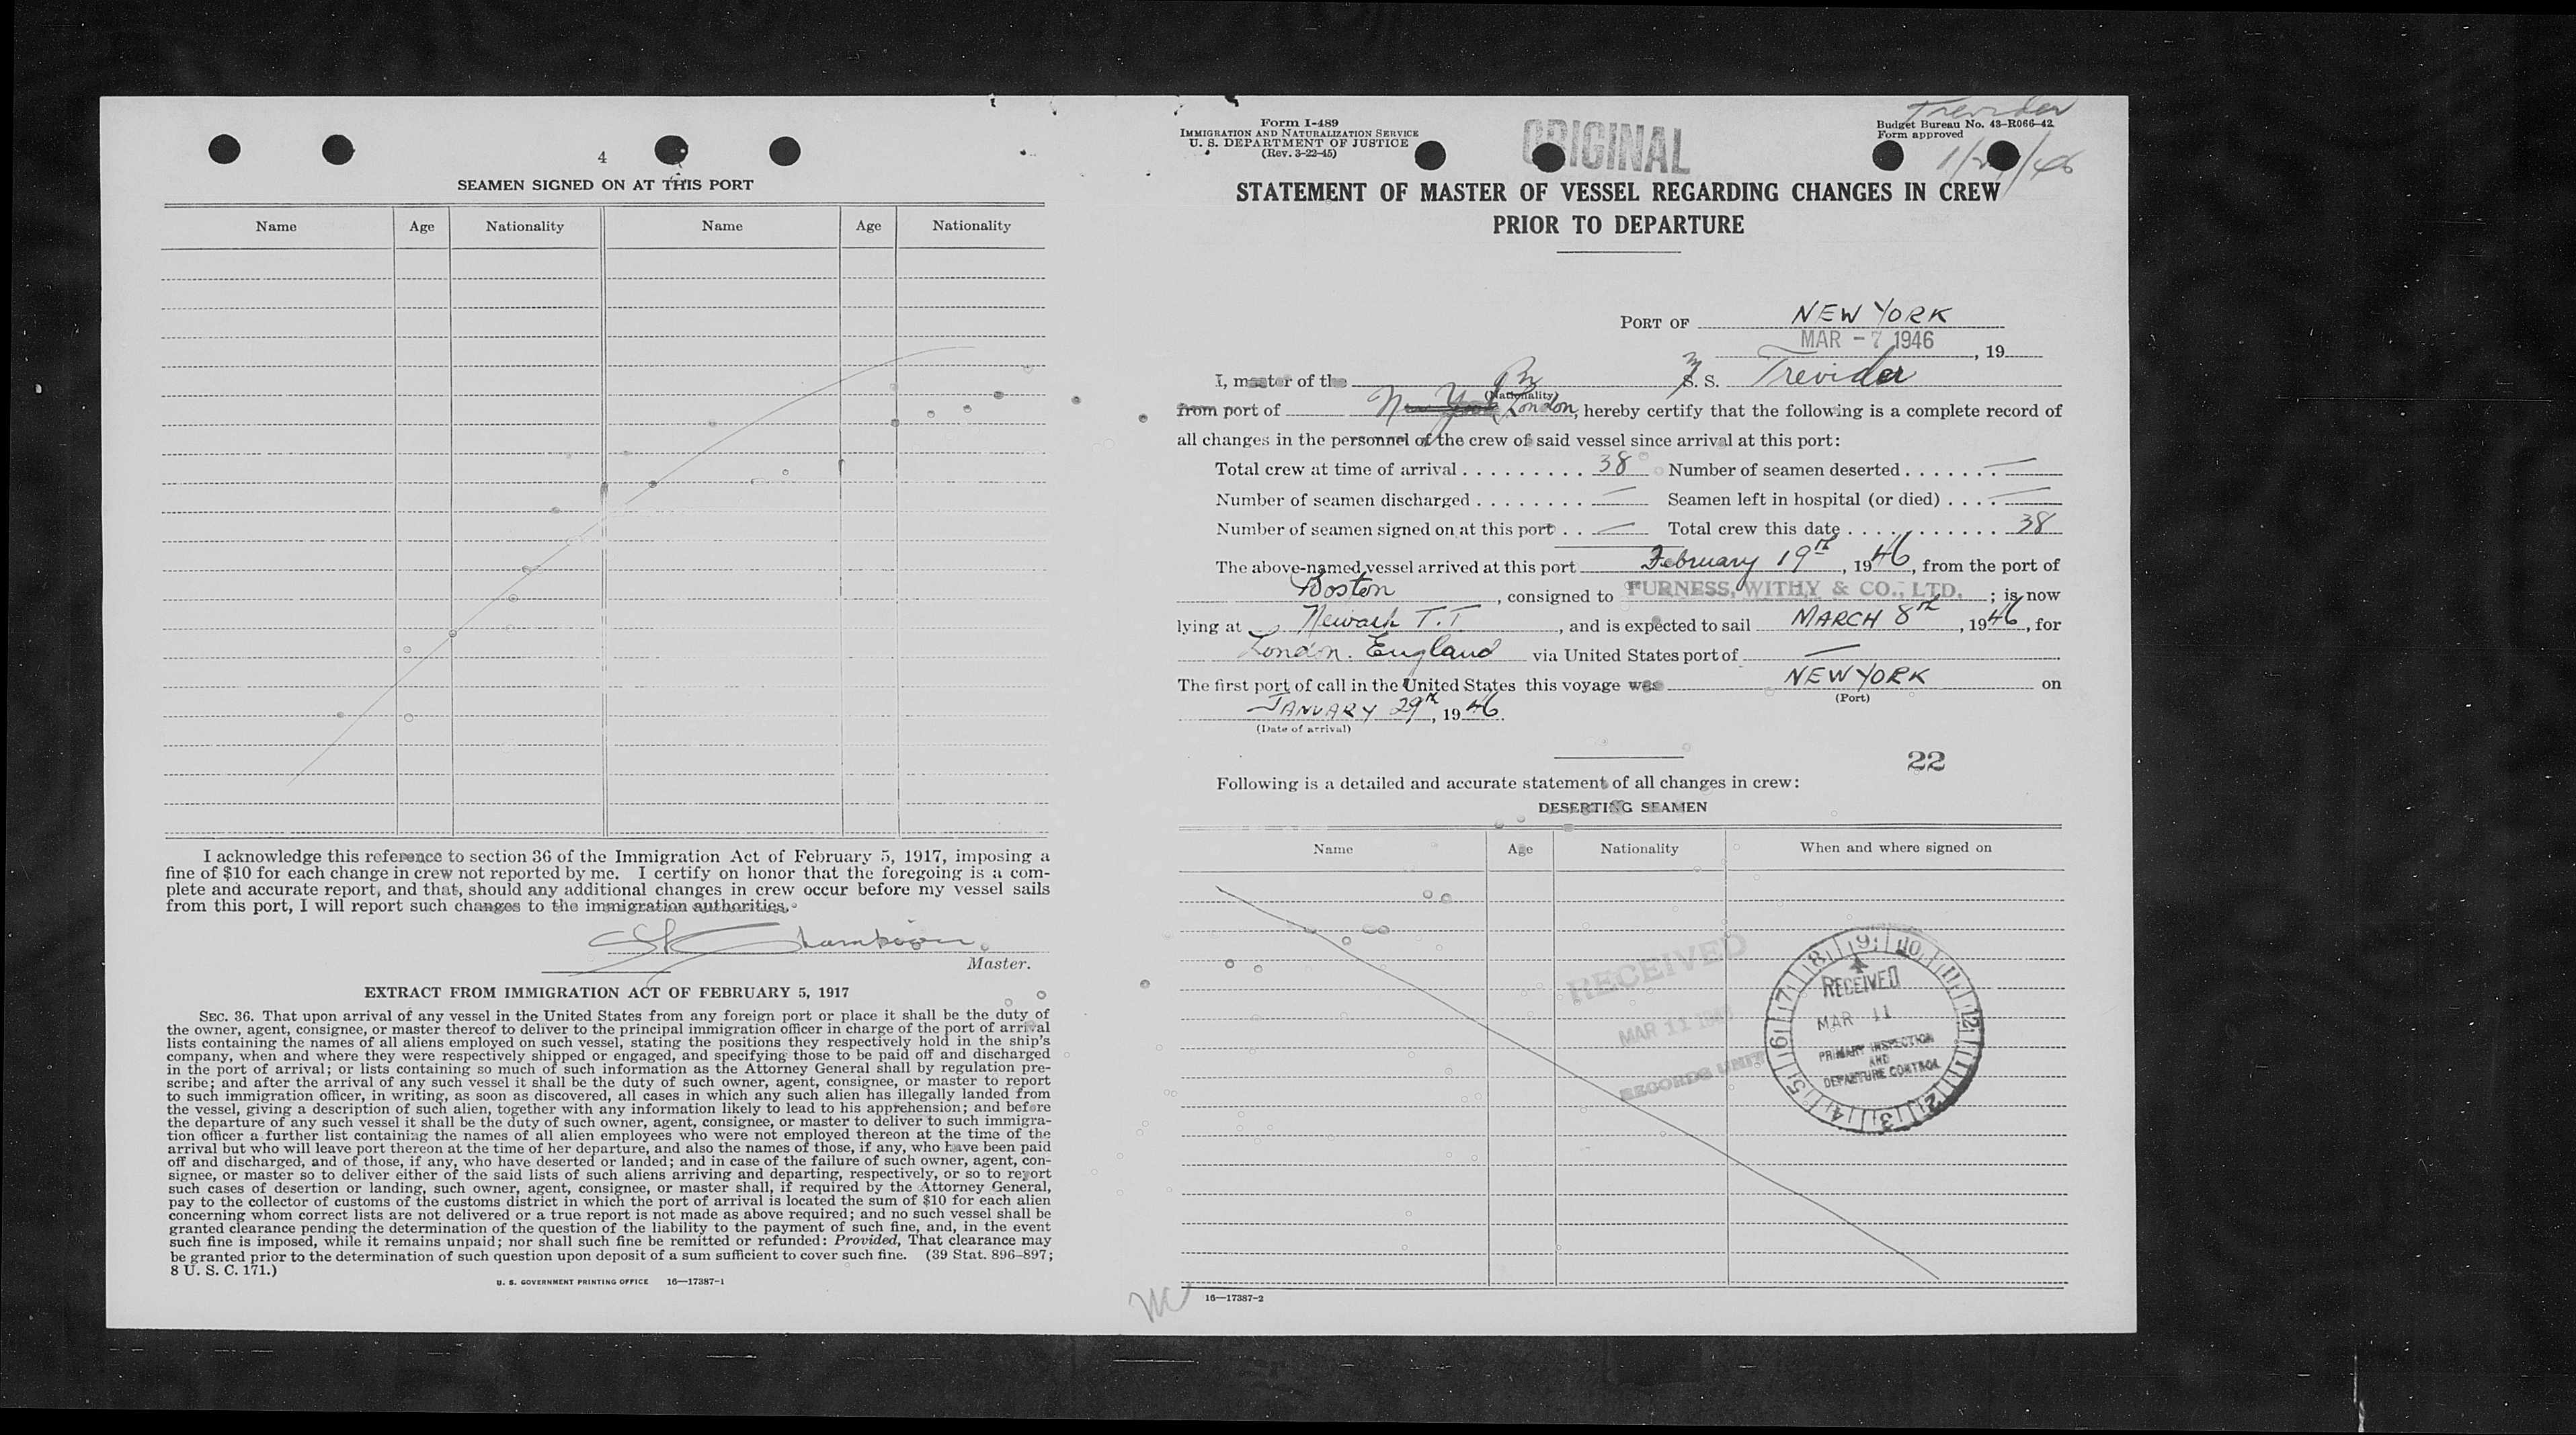 4
SEAMEN SIGNED ON AT THIS PORT
Name Age Nationality Name Age Nationality
I acknowledge this reference to section 36 of the Immigration Act of February 5, 1917, imposing a
fine of $10 for each change in crew not reported by me. I certify on honor that the foregoing is a com-
plete and accurate report, and that, should any additional changes in crew occur before my vessel sails
from this port, I will report such changes to the immigration authorities.
Master.
EXTRACT FROM IMMIGRATION ACT OF FEBRUARY 5, 1917
SEC. 36. That upon arrival of any vessel in the United States from any foreign port or place it shall be the duty of
the owner, agent, consignee, or master thereof to deliver to the principal immigration officer in charge of the port of arrival
lists containing the names of all aliens employed on such vessel, stating the positions they respectively hold in the ship's
company, when and where they were respectively shipped or engaged, and specifying those to be paid off and discharged
in the port of arrival; or lists containing so much of such information as the Attorney General shall by regulation pre-
scribe; and after the arrival of any such vessel it shall be the duty of such owner, agent, consignee, or master to report
to such immigration officer, in writing, as soon as discovered, all cases in which any such alien has illegally landed from
the vessel, giving a description of such alien, together with any information likely to lead to his apprehension; and before
the departure of any such vessel it shall be the duty of such owner, agent, consignee, or master to deliver to such immigra-
tion officer a further list containing the names of all alien employees who were not employed thereon at the time of the
arrival but who will leave port thereon at the time of her departure, and also the names of those, if any, who have been paid
off and discharged, and of those, if any, who have deserted or landed; and in case of the failure of such owner, agent, con-
signee, or master so to deliver either of the said lists of such aliens arriving and departing, respectively, or so to report
such cases of desertion or landing, such owner, agent, consignee, or master shall, if required by the Attorney General,
pay to the collector of customs of the customs district in which the port of arrival is located the sum of $10 for each alien
concerning whom correct lists are not delivered or a true report is not made as above required; and no such vessel shall be
granted clearance pending the determination of the question of the liability to the payment of such fine, and, in the event
such fine is imposed, while it remains unpaid; nor shall such fine be remitted or refunded: Provided, That clearance may
be granted prior to the determination of such question upon deposit of a sum sufficient to cover such fine. (39 Stat. 896-897;
8 U. S. C. 171.)
U. S. GOVERNMENT PRINTING OFFICE 16—17387-1
Form I-489
IMMIGRATION AND NATURALIZATION SERVICE
U. S. DEPARTMENT OF JUSTICE
(Rev. 3-22-45)
ORIGINAL
Trevider
Budget Bureau No. 43-R066-42
Form approved
STATEMENT OF MASTER OF VESSEL REGARDING CHANGES IN CREW
PRIOR TO DEPARTURE
PORT OF NEW YORK
MAR - 7 1946, 19
I, master of the Br S. S. Trevider
(Nationality)
from port of New York London, hereby certify that the following is a complete record of
all changes in the personnel of the crew of said vessel since arrival at this port:
Total crew at time of arrival 38 Number of seamen deserted —
Number of seamen discharged — Seamen left in hospital (or died) —
Number of seamen signed on at this port — Total crew this date 38
The above-named vessel arrived at this port February 19th, 1946, from the port of
Boston, consigned to FURNESS, WITHY & CO., LTD. ; is now
lying at Newark T.T., and is expected to sail MARCH 8th, 1946, for
London. England via United States port of —
The first port of call in the United States this voyage was NEW YORK on
(Port)
JANUARY 29th, 1946.
(Date of arrival)
22
Following is a detailed and accurate statement of all changes in crew:
DESERTING SEAMEN
Name Age Nationality When and where signed on
RECEIVED
MAR 11 1946
RECORDS UNIT
RECEIVED
MAR 11
PRIMARY INSPECTION
AND
DEPARTURE CONTROL
1 2 3 4 5 6 7 8 9 10 11 12
16—17387-2